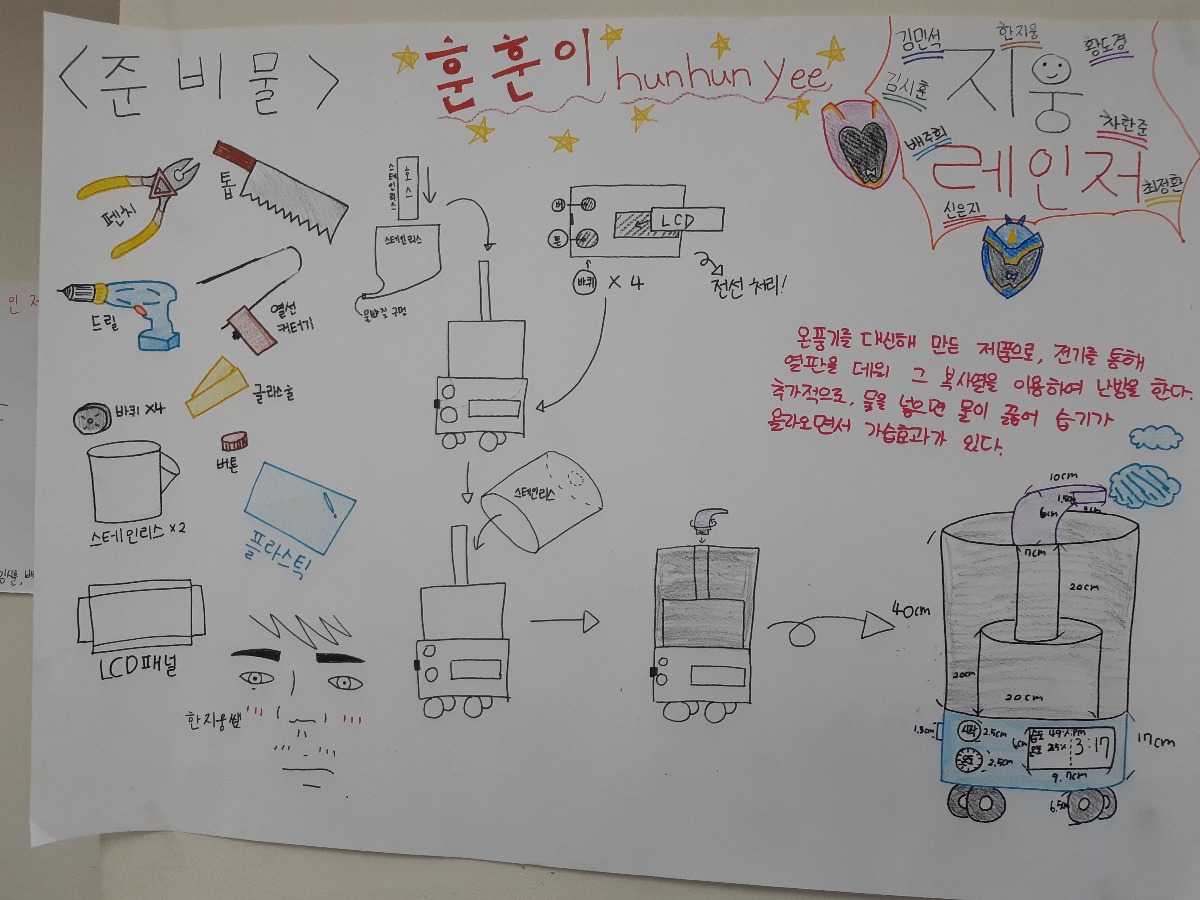 <준비물>
훈훈이 hunhun yee
김민석
한지웅
황도경
김시훈
지웅
배주희
차한준
레인저
최정환
신은지
펜치
톱
드릴
열선
커터기
바퀴 X4
글라스울
버튼
스테인리스 X2
플라스틱
LCD패널
한지웅쌤
스테인리스
호스
스테인리스
물빠질 구멍
버
튼
LCD
바퀴 X 4
전선 처리!
스테인리스
온풍기를 대신해 만든 제품으로, 전기를 통해
열판을 데워 그 복사열을 이용하여 난방을 한다.
추가적으로, 물을 넣으면 물이 끓어 습기가
올라오면서 가습효과가 있다.
10cm
6cm
7cm
20cm
40cm
20cm
20cm
1.3cm
시작
2.5cm
온도
2.5cm
6cm
습도 49%
PM
3:17
9.7cm
17cm
6.5cm
인 저